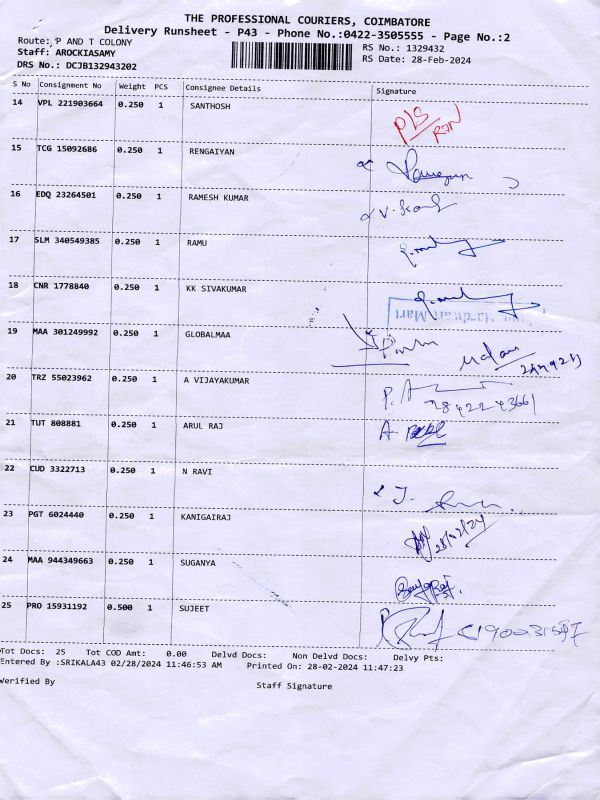 THE PROFESSIONAL COURIERS, COIMBATORE
Delivery Runsheet - P43 - Phone No.:0422-3505555 - Page No.:2
Route: P AND T COLONY
RS No.: 1329432
Staff: AROCKIASAMY
RS Date: 28-Feb-2024
DRS No.: DCJB132943202
S No Consignment No Weight PCS Consignee Details Signature
14 VPL 221903664 0.250 1 SANTHOSH
15 TCG 15092686 0.250 1 RENGAIYAN
16 EDQ 23264501 0.250 1 RAMESH KUMAR
17 SLM 340549385 0.250 1 RAMU
18 CNR 1778840 0.250 1 KK SIVAKUMAR
19 MAA 301249992 0.250 1 GLOBALMAA
20 TRZ 55023962 0.250 1 A VIJAYAKUMAR
21 TUT 808881 0.250 1 ARUL RAJ
22 CUD 3322713 0.250 1 N RAVI
23 PGT 6024440 0.250 1 KANIGAIRAJ
28/02/24
24 MAA 944349663 0.250 1 SUGANYA
25 PRO 15931192 0.500 1 SUJEET
Tot Docs: 25 Tot COD Amt: 0.00 Delvd Docs: Non Delvd Docs: Delvy Pts:
Entered By :SRIKALA43 02/28/2024 11:46:53 AM Printed On: 28-02-2024 11:47:23
Verified By Staff Signature